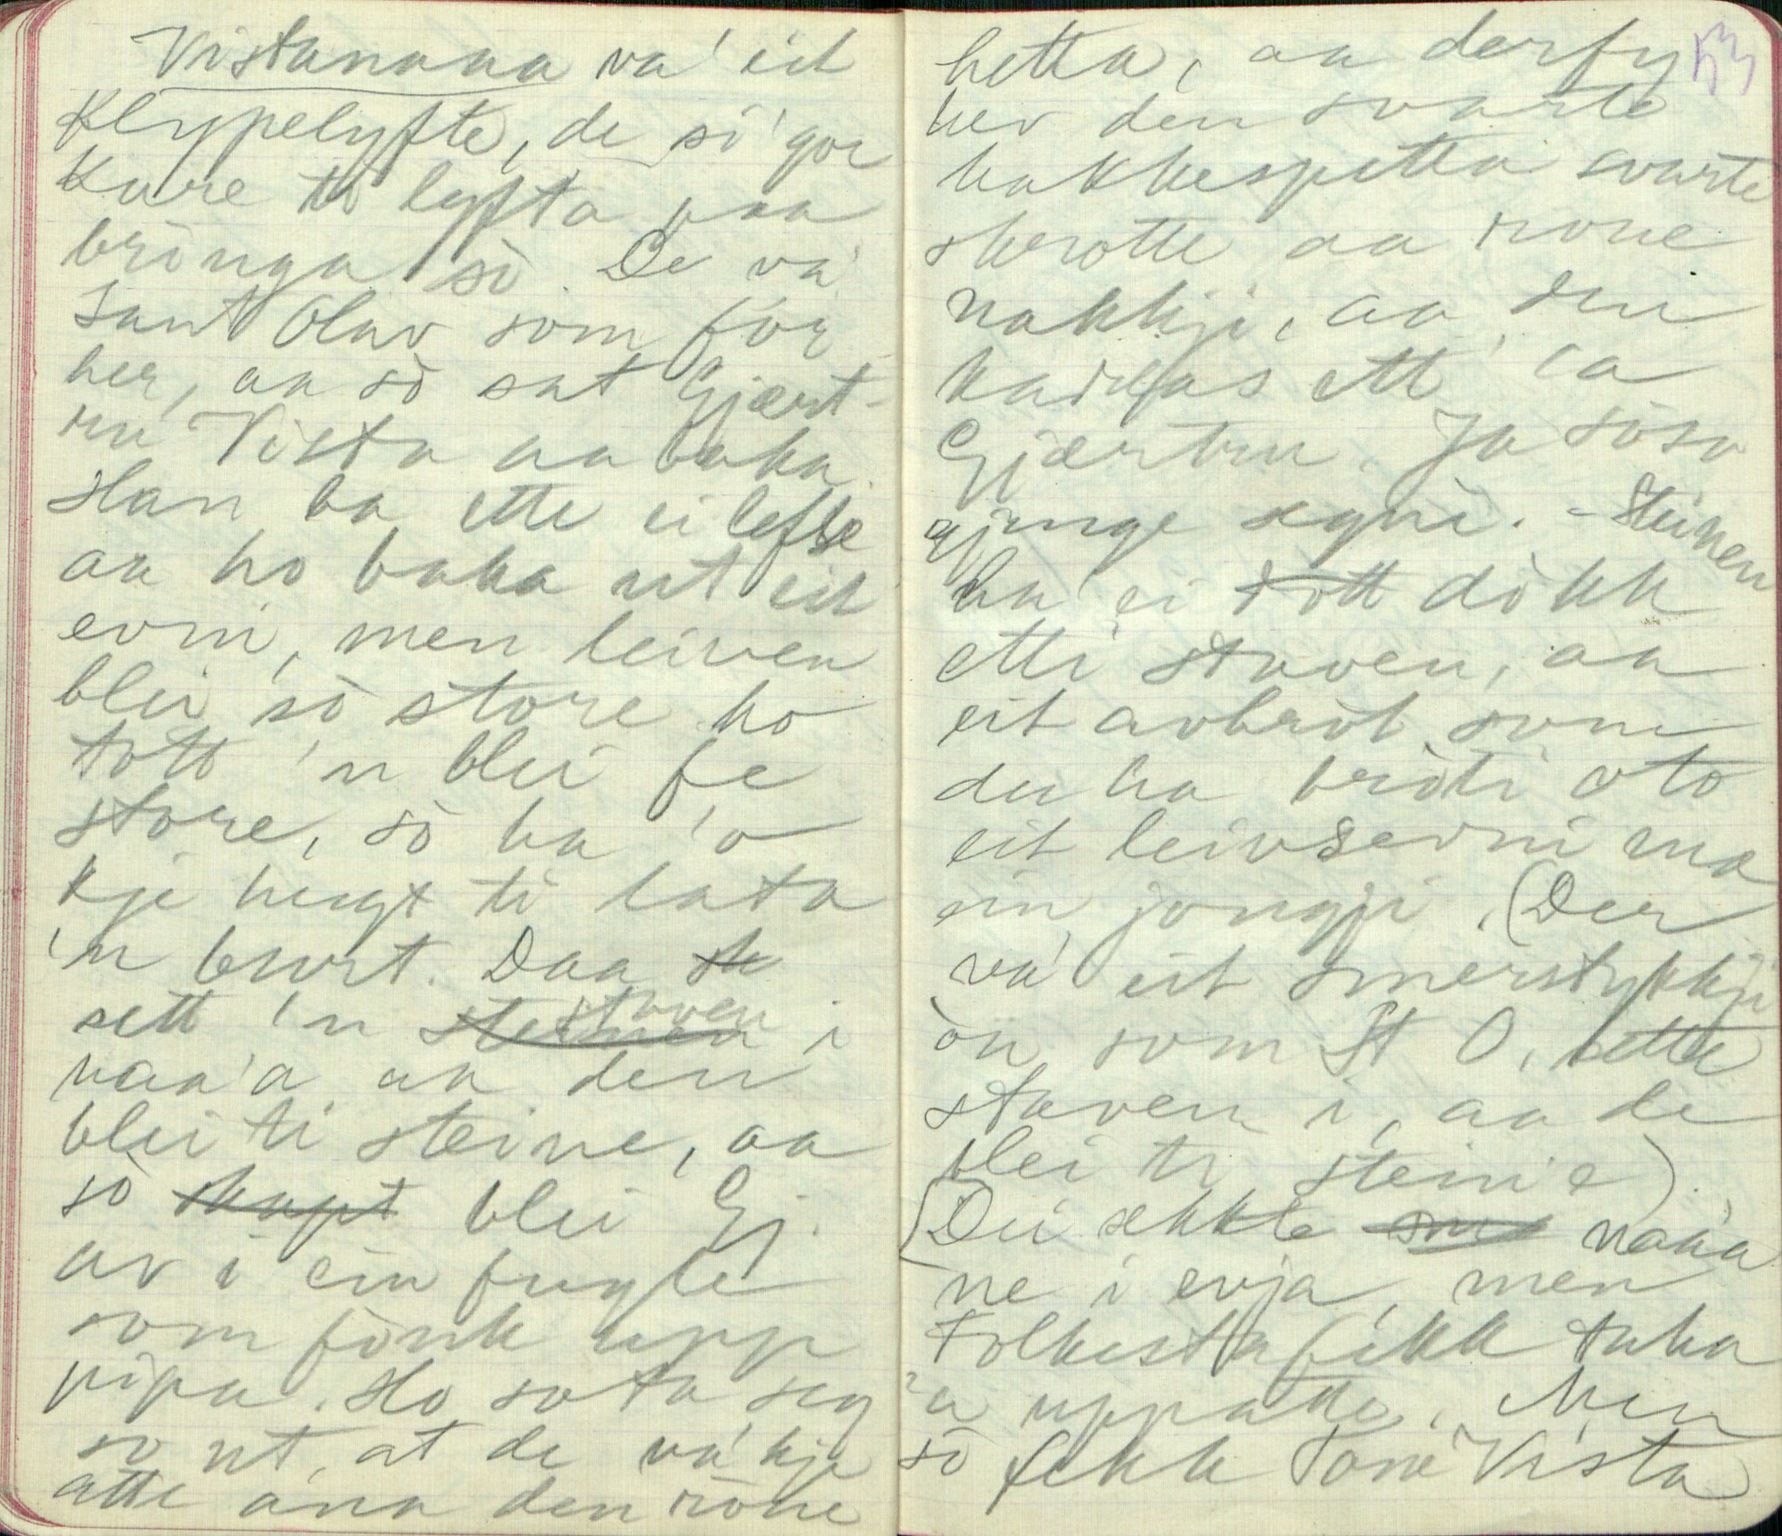 Vistanaaa va' eit
klypelyfte, de si' gor
kare ti lyfta paa
bringa sò. De va'
Sant Olav som fòr
her, aa sò sat Gjært-
ru Vistа aa baka.
Han ba ette ei lefse
aa ho baka ut eit
evni, men leiven
blei sò store ho
tott 'n blei fe
store, sò ha 'o
kje hugt ti lata
'n burt. Daa
sett 'n staven i
naa'a aa den
blei ti steine, aa
sò blei Gj.
av i ein fugle
som fònk upp
pipa. Ho sota seg
so ut, at de va' kje
atte ana den ròue
hetta, aa derfy 53
hev den svarte
hakkespetta svarte
skrotte aa roue
nakkji, aa den
kaddas ett 'ea
Gjærtru. Ja sòso
gjenge segni. - Steinen
ha' ei dòkk
etti staven, aa
eit avbròt som
du ha bròti uto
eit leivsevni mæ
ein jongji. (Der
va' eit smerstykkji
òn som St O. sette
staven i, aa de
blei ti steine)
(Dei sekkte naa'a
ne i evja, men
Folkesta fekk taka
'a uppatte. Men
sò fekk Tone Vista